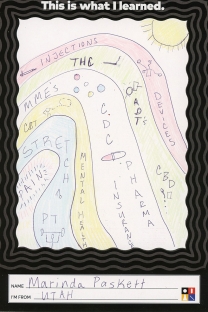 This is what I learned.
INJECTIONS
THC
MMES
ADTs
DEVICES
CBT
STRETCH & PT
PAIN
MENTAL HEALTH
CDC
INSURANCE
PHARMA
CBD
NAME Marinda Paskett
I'M FROM UTAH